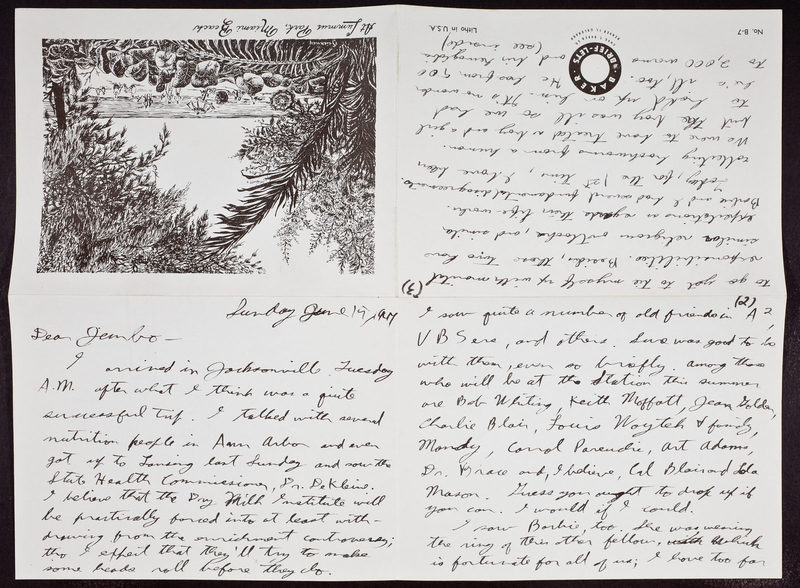 Sunday June 15, 1947
Dear Jembo—
I arrived in Jacksonville Tuesday
A.M. after what I think was a quite
successful trip. I talked with several
nutrition people in Ann Arbor and even
got up to Lansing last Sunday and saw the
State Health Commissioner, Dr. DeKleine.
I believe that the Dry Milk Institute will
be practically forced into at least with-
drawing from the enrichment controversy;
tho I expect that they'll try to make
some heads roll before they do.
(2)
I saw quite a number of old friends in A²,
VBSers, and others. Sure was good to be
with them, even so briefly. Among those
who will be at the Station this summer
are Bob Whiting, Keith Moffatt, Jean Golden,
Charlie Blair, Louis Woytek & family,
Mandy, Carrol Art Adams,
Dr. Brace and, I believe, Cal Blair and Lola
Mason. Guess you ought to drop up if
you can. I would if I could.
I saw Barbie, too. She was wearing
the ring of this other fellow, which
is fortunate for all of us; I have too far
(3)
to go yet to tie myself up with marital
responsibilities. Besides, those two have
similar religious outlooks, and similar
expectations as regards their life works.
Barbie and I had several fundamental disagreements.
Today, for the 1st time, I have been
collecting hookworms from a human.
We were to have treated a boy and a girl
but the boy was ill so we had
to hold up on him. It's no wonder
he's ill, too. He has from 900
to 2,000 worms and his
(see inside)
At Lummus Park, Miami Beach
BAKER'S BRIEF-LETS
No. B-7
Litho in U.S.A.